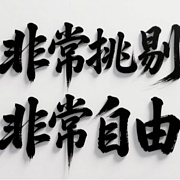 非常挑剔
非常自由